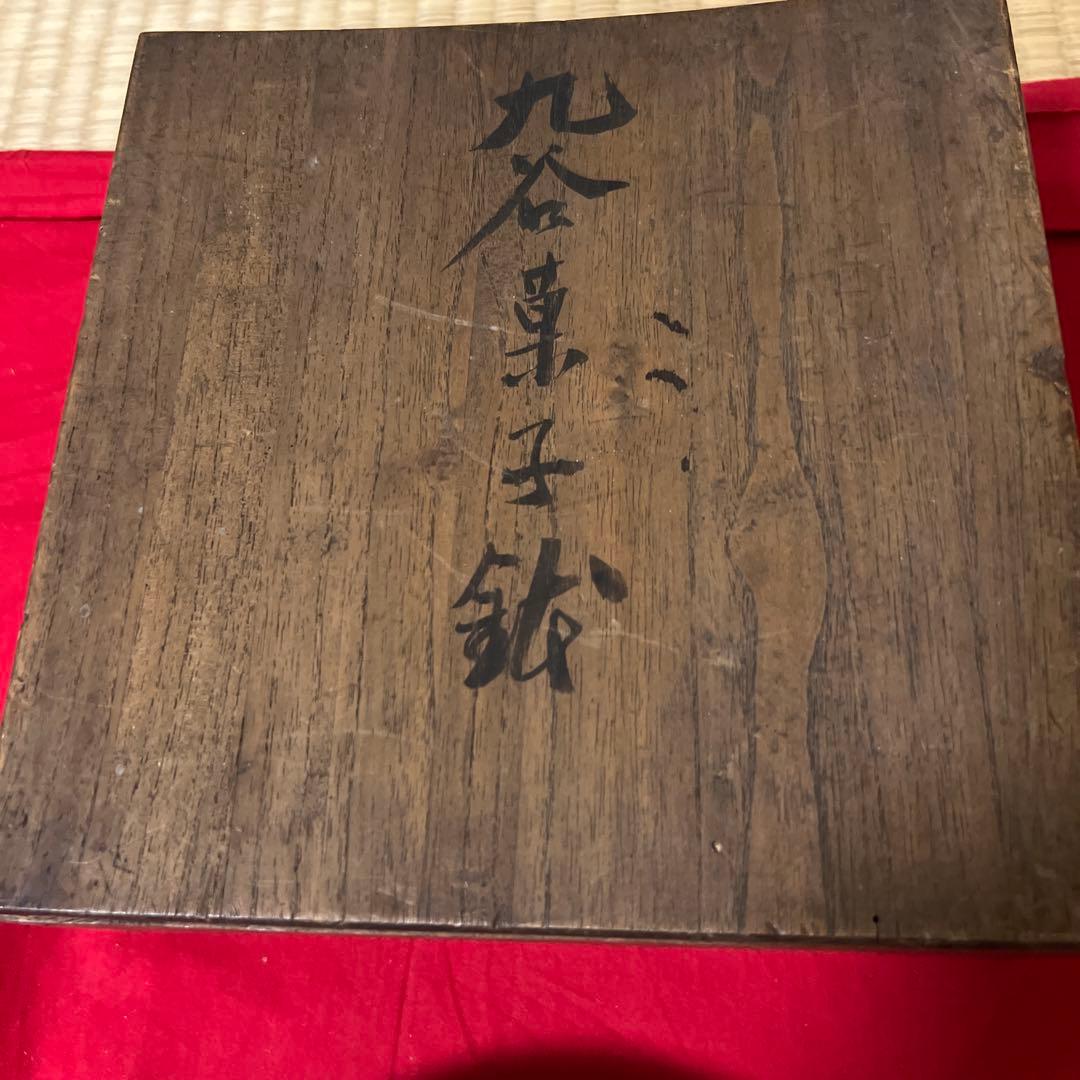 九谷菓子鉢